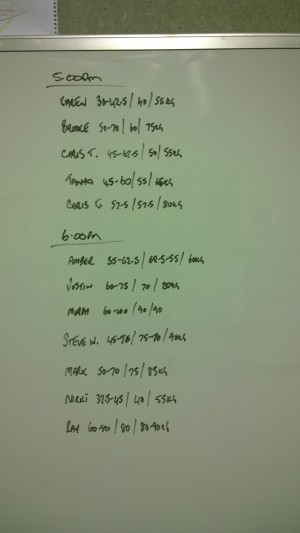 5:00pm
KAREN 30-42.5 / 40 / 55KG
BROOKE 50-70 / 60 / 75KG
CHRIS T. 45-62.5 / 50 / 55KG
45-60 / 55 / 65KG
CHRIS G 57.5 / 57.5 / 80KG
6:00pm
AMBER 35-62.5 / 62.5-55 / 60KG
JUSTIN 60-75 / 70 / 80KG
60-100 / 90 / 90
STEVE W. 45-70 / 75-70 / 90KG
MARK 50-70 / 75 / 85KG
NIKKI 37.5-45 / 40 / 55KG
RAY 60-90 / 80 / 80-90KG